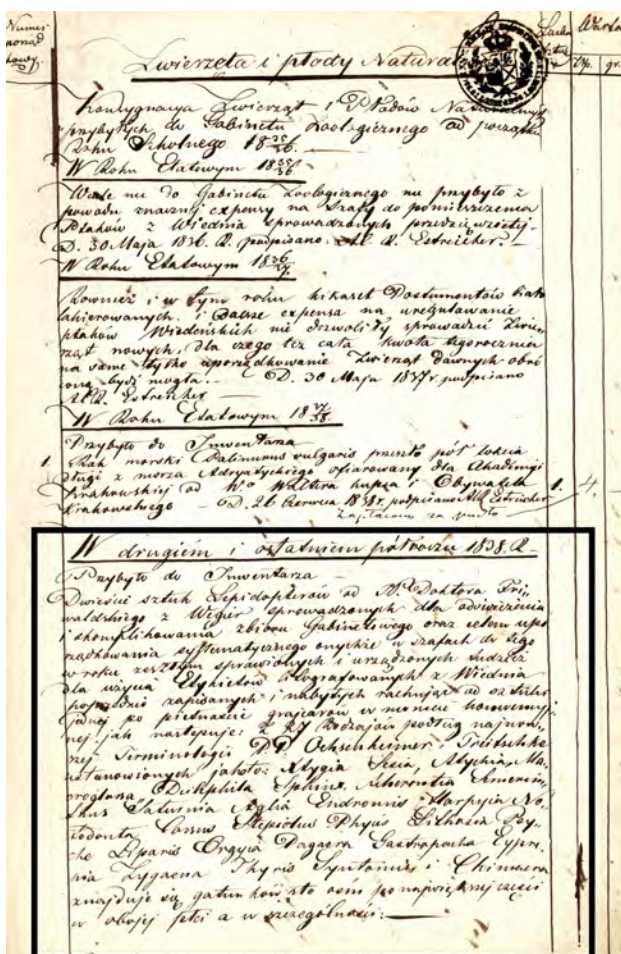 Numer porząd kowy.
Liczba sztuk
Wartość
Złp. gr.
Zwierzęta i płody Naturalne
Konsygnacya Zwierząt i Płodów Naturalnych
przybyłych do Gabinetu Zoologicznego od początku
Roku Szkolnego 18 35/36.
W Roku Etatowym 18 35/36
Wcale nic do Gabinetu Zoologicznego nie przybyło z
powodu znacznej expensy na Szafy do pomieszczenia
Ptaków z Wiednia sprowadzonych przedsięwziętej.
D. 30 Maja 1836. R. podpisano. Al. R. Estreicher.
W Roku Etatowym 18 36/37.
Również i w tym roku kilkaset Postumentów biało
lakierowanych i dalsze expensa na uregulowanie
ptaków Wiedeńskich nie dozwoliły sprowadzić Zwie,
rząt nowych, dla czego też cała kwota tegoroczna
na same tylko uporządkowanie Zwierząt dawnych obró
coną bydź mogła. D. 30 Maja 1837 r. podpisano
Al. R. Estreicher
W Roku Etatowym 18 37/38.
Przybyło do Inwentarza
1. Rak morski Palinurus vulgaris przeszło pół łokcia
długi z morza Adryatyckiego ofiarowany dla Akademji
Krakowskiej od Wo Waltera kupca i Obywatela 1. 4.
Krakowskiego D. 26 Czerwca 1838 r. podpisano Al. R. Estreicher
zapłacono za pudło
W drugiém i ostatniém półroczu 1838. R.
Przybyło do Inwentarza
Dwieście sztuk Lepidopterów od P. Doktora Fri,
waldskiego z Węgier sprowadzonych dla odświeżenia
i skomplikowania zbioru Gabinetowego oraz celem upo
rządkowania systematycznego onychże w szafach do tego
w roku zeszłym sprawionych i urządzonych tudzież
dla użycia Etykietów litografowanych z Wiednia
poprzednio zapisanych i nabytych rachując od sztuki
jednej po piętnaście grajcarów w monecie konwencyj,
nej jak następuje: z 27 Rodzajów podług najnow,
szej Terminologii PP. Ochsenheimer i Treitschke
ustanowionych jakoto: Atygia Sesia, Atychia, Ma,
croglossa Deilephila Sphinx, Acherontia Smerin,
thus Saturnia Aglia Endromis Harpyia No,
todonta Cossus Hepiolus Phycis Lithosia Psy,
che Liparis Orgyia Pygaera Gastropacha Eypre,
pia Zygaena Thyris Syntomis i Chimaera
znajduje się gatunków sto ośm po największej części
w obojej płci a w szczególności: